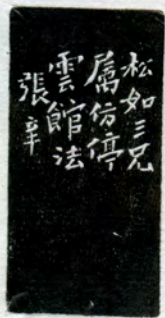 松如三兄
属仿停
雲館法
張辛